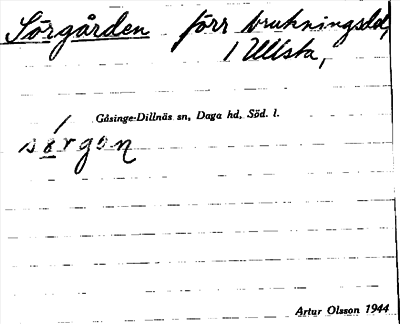 Sörgården förr brukningsdel,
i Ullsta,
Gåsinge-Dillnäs sn, Daga hd, Söd. l.
Artur Olsson 1944